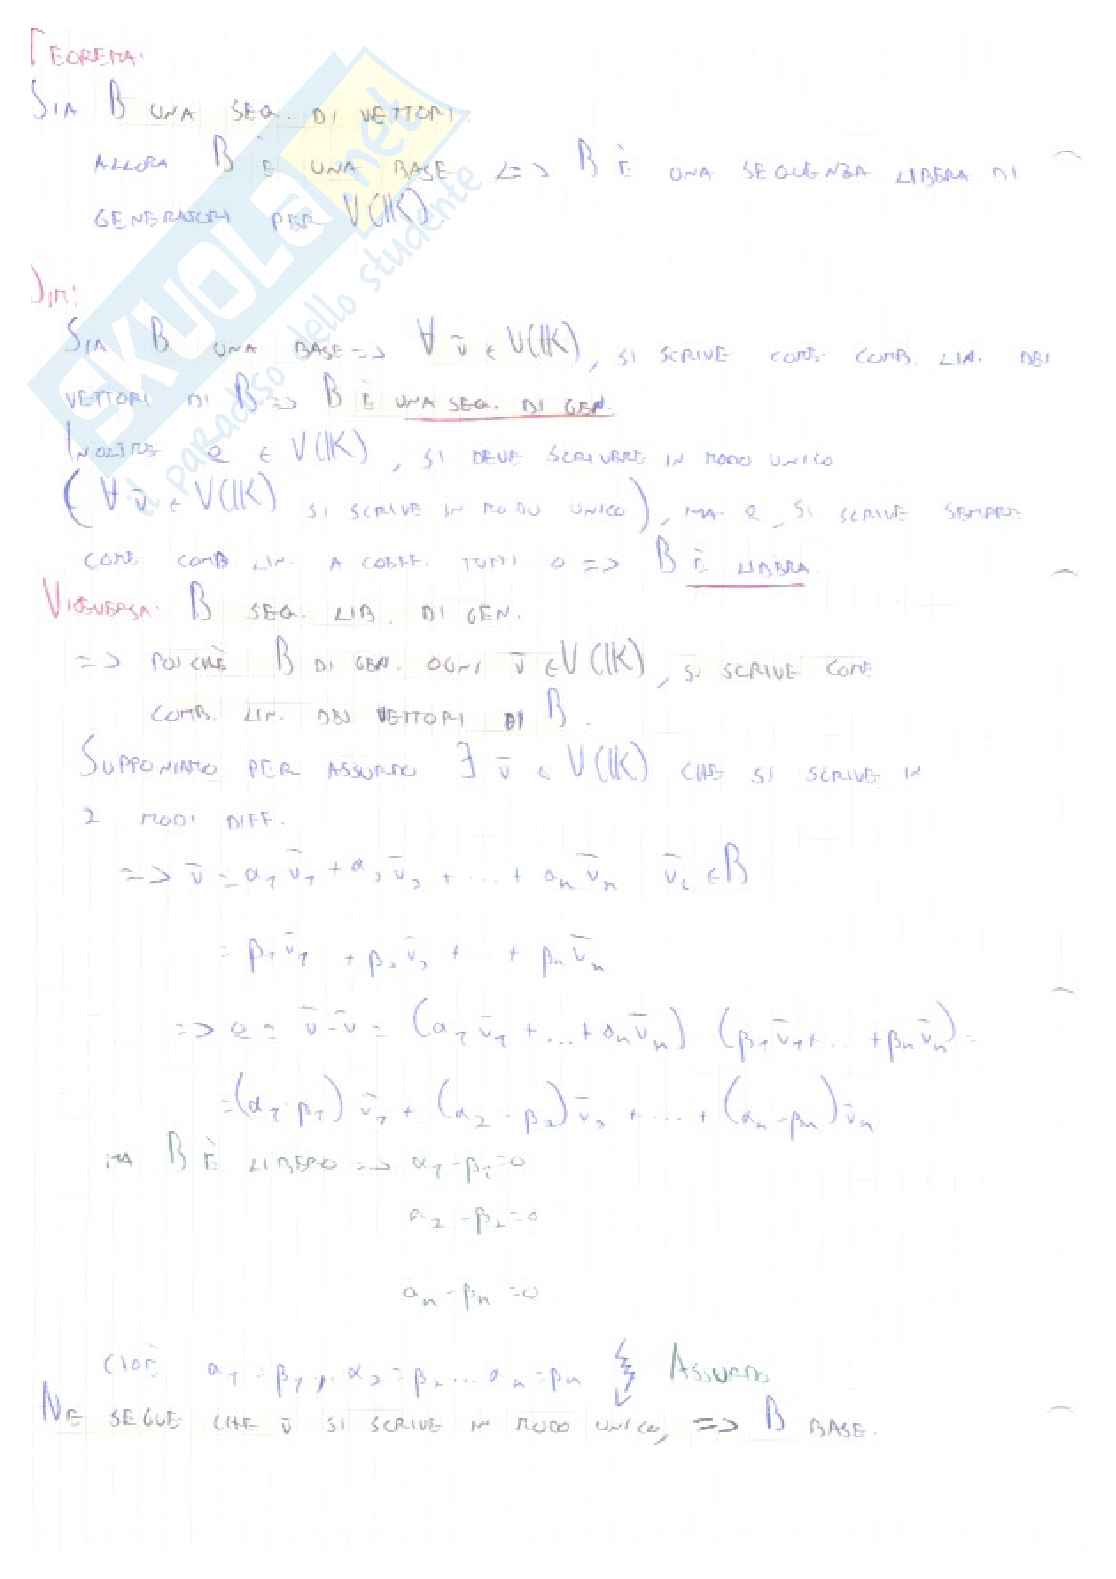 TEOREMA:
SIA B UNA SEQ. DI VETTORI.
ALLORA B È UNA BASE <=> B È UNA SEQUENZA LIBERA DI
GENERATORI PER V(IK)
DIM:
SIA B UNA BASE => ∀ v̄ ∈ V(IK), SI SCRIVE COME COMB. LIN. DEI
VETTORI DI B => B È UNA SEQ. DI GEN.
INOLTRE 0 ∈ V(IK), SI DEVE SCRIVERE IN MODO UNICO
(∀ v̄ ∈ V(IK) SI SCRIVE IN MODO UNICO), MA 0, SI SCRIVE SEMPRE
COME COMB LIN. A COEFF. TUTTI 0 => B È LIBERA.
VICEVERSA: B SEQ. LIB. DI GEN.
=> POICHÈ B DI GEN. OGNI v̄ ∈ V(IK), SI SCRIVE COME
COMB. LIN. DEI VETTORI DI B.
SUPPONIAMO PER ASSURDO ∃ v̄ ∈ V(IK) CHE SI SCRIVE IN
2 MODI DIFF.
=> v̄ = α₁v̄₁ + α₂v̄₂ + ... + αₙv̄ₙ v̄ᵢ ∈ B
= β₁v̄₁ + β₂v̄₂ + ... + βₙv̄ₙ
=> 0 = v̄ - v̄ = (α₁v̄₁ + ... + αₙv̄ₙ) (β₁v̄₁ + ... + βₙv̄ₙ) =
= (α₁ - β₁)v̄₁ + (α₂ - β₂)v̄₂ + ... + (αₙ - βₙ)v̄ₙ
MA B È LIBERO => α₁ - β₁ = 0
α₂ - β₂ = 0
αₙ - βₙ = 0
CIOÈ α₁ = β₁, α₂ = β₂ ... αₙ = βₙ ASSURDO
NE SEGUE CHE v̄ SI SCRIVE IN MODO UNICO, => B BASE.
SKUOLA.net
il paradiso dello studente